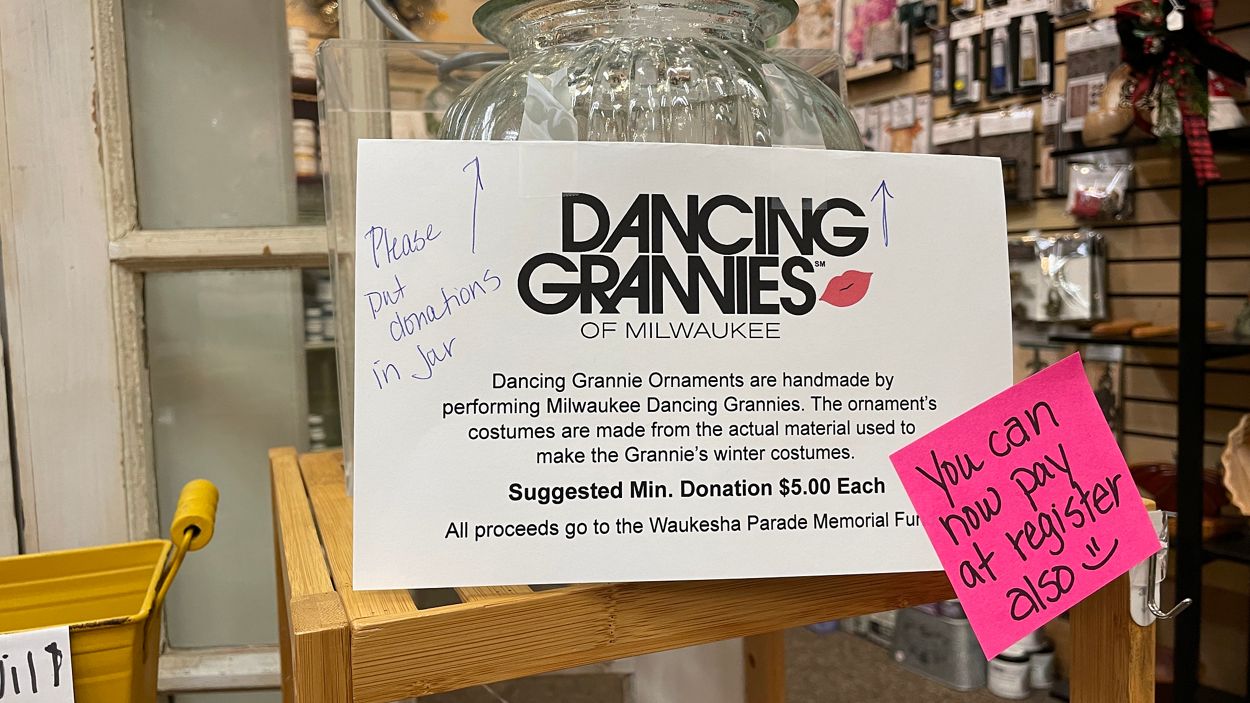 Please
put
donations
in Jar
DANCING
GRANNIES SM
OF MILWAUKEE
Dancing Grannie Ornaments are handmade by
performing Milwaukee Dancing Grannies. The ornament's
costumes are made from the actual material used to
make the Grannie's winter costumes.
Suggested Min. Donation $5.00 Each
All proceeds go to the Waukesha Parade Memorial Fu
You can
now pay
at register
also